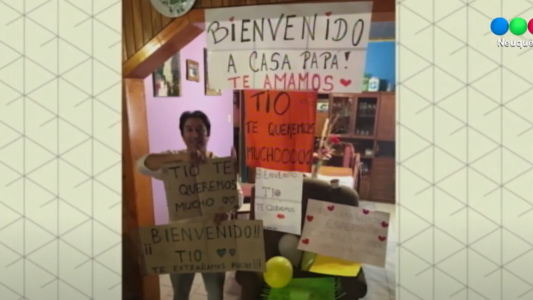 BIENVENIDO
A CASA PAPA!
TE AMAMOS
TIO
TE QUEREMOS
MUCHOOOOO
TIO TE
QUEREMOS
MUCHO
BIENVENIDO
TIO
TE QUEREMOS
¡¡BIENVENIDO!!
TIO
TE EXTRAÑAMOS MUCHO
Neuqu